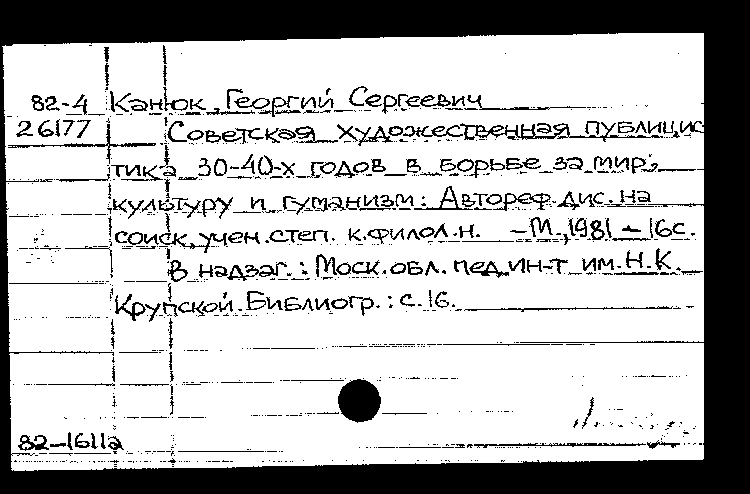 82-4 Канюк, Георгий Сергеевич
26177 Советская художественная публицис
тика 30-40-х годов в борьбе за мир,
культуру и гуманизм: Автореф. дис. на
соиск. учен. степ. к.филол.н. – М., 1981 – 16с.
В надзаг.: Моск. обл. пед. ин-т им. Н.К.
Крупской. Библиогр.: с. 16.
82-1611а